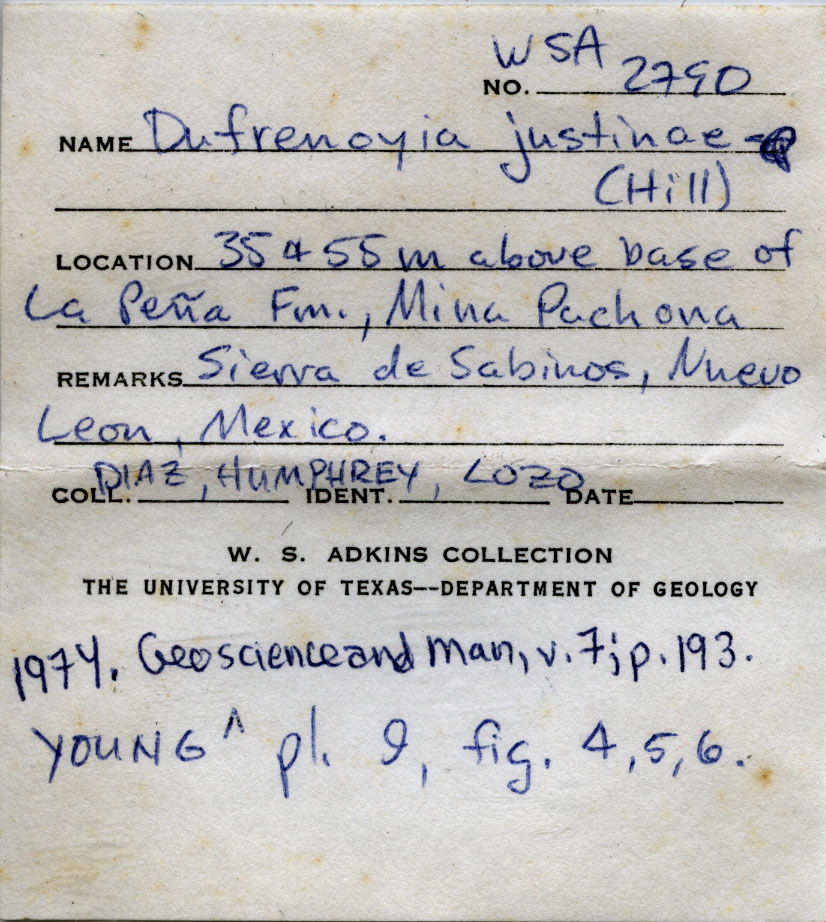 WSA
NO. 2790
NAME Dufrenoyia justinae
(Hill)
LOCATION 35 & 55 m above base of
La Peña Fm., Mina Pachona
REMARKS Sierra de Sabinos, Nuevo
Leon, Mexico.
DIAZ, HUMPHREY, LOZO
COLL. IDENT. DATE
W. S. ADKINS COLLECTION
THE UNIVERSITY OF TEXAS--DEPARTMENT OF GEOLOGY
1974. Geoscience and Man, v. 7; p. 193.
YOUNG ^ pl. 9, fig. 4, 5, 6.